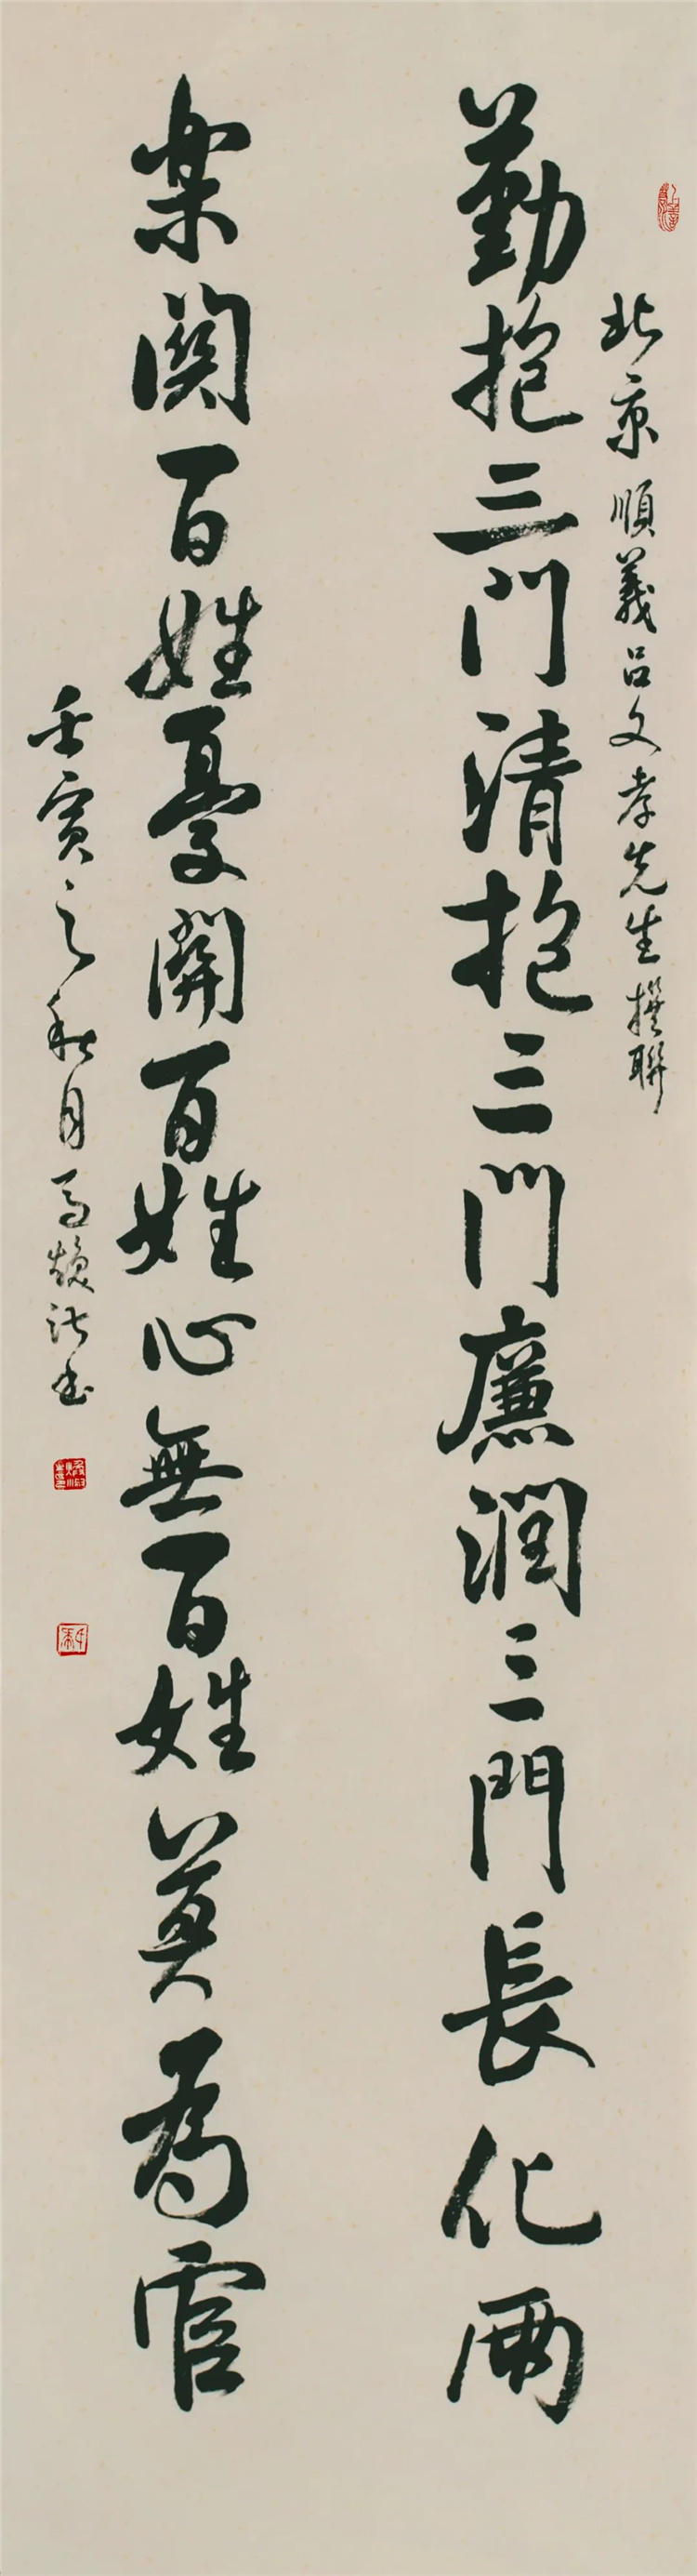 北京順義呂文孝先生撰聯
勤抱三门清抱三门廉润三門長化雨
楽関百姓憂開百姓心無百姓莫為官
壬寅之秋月
书